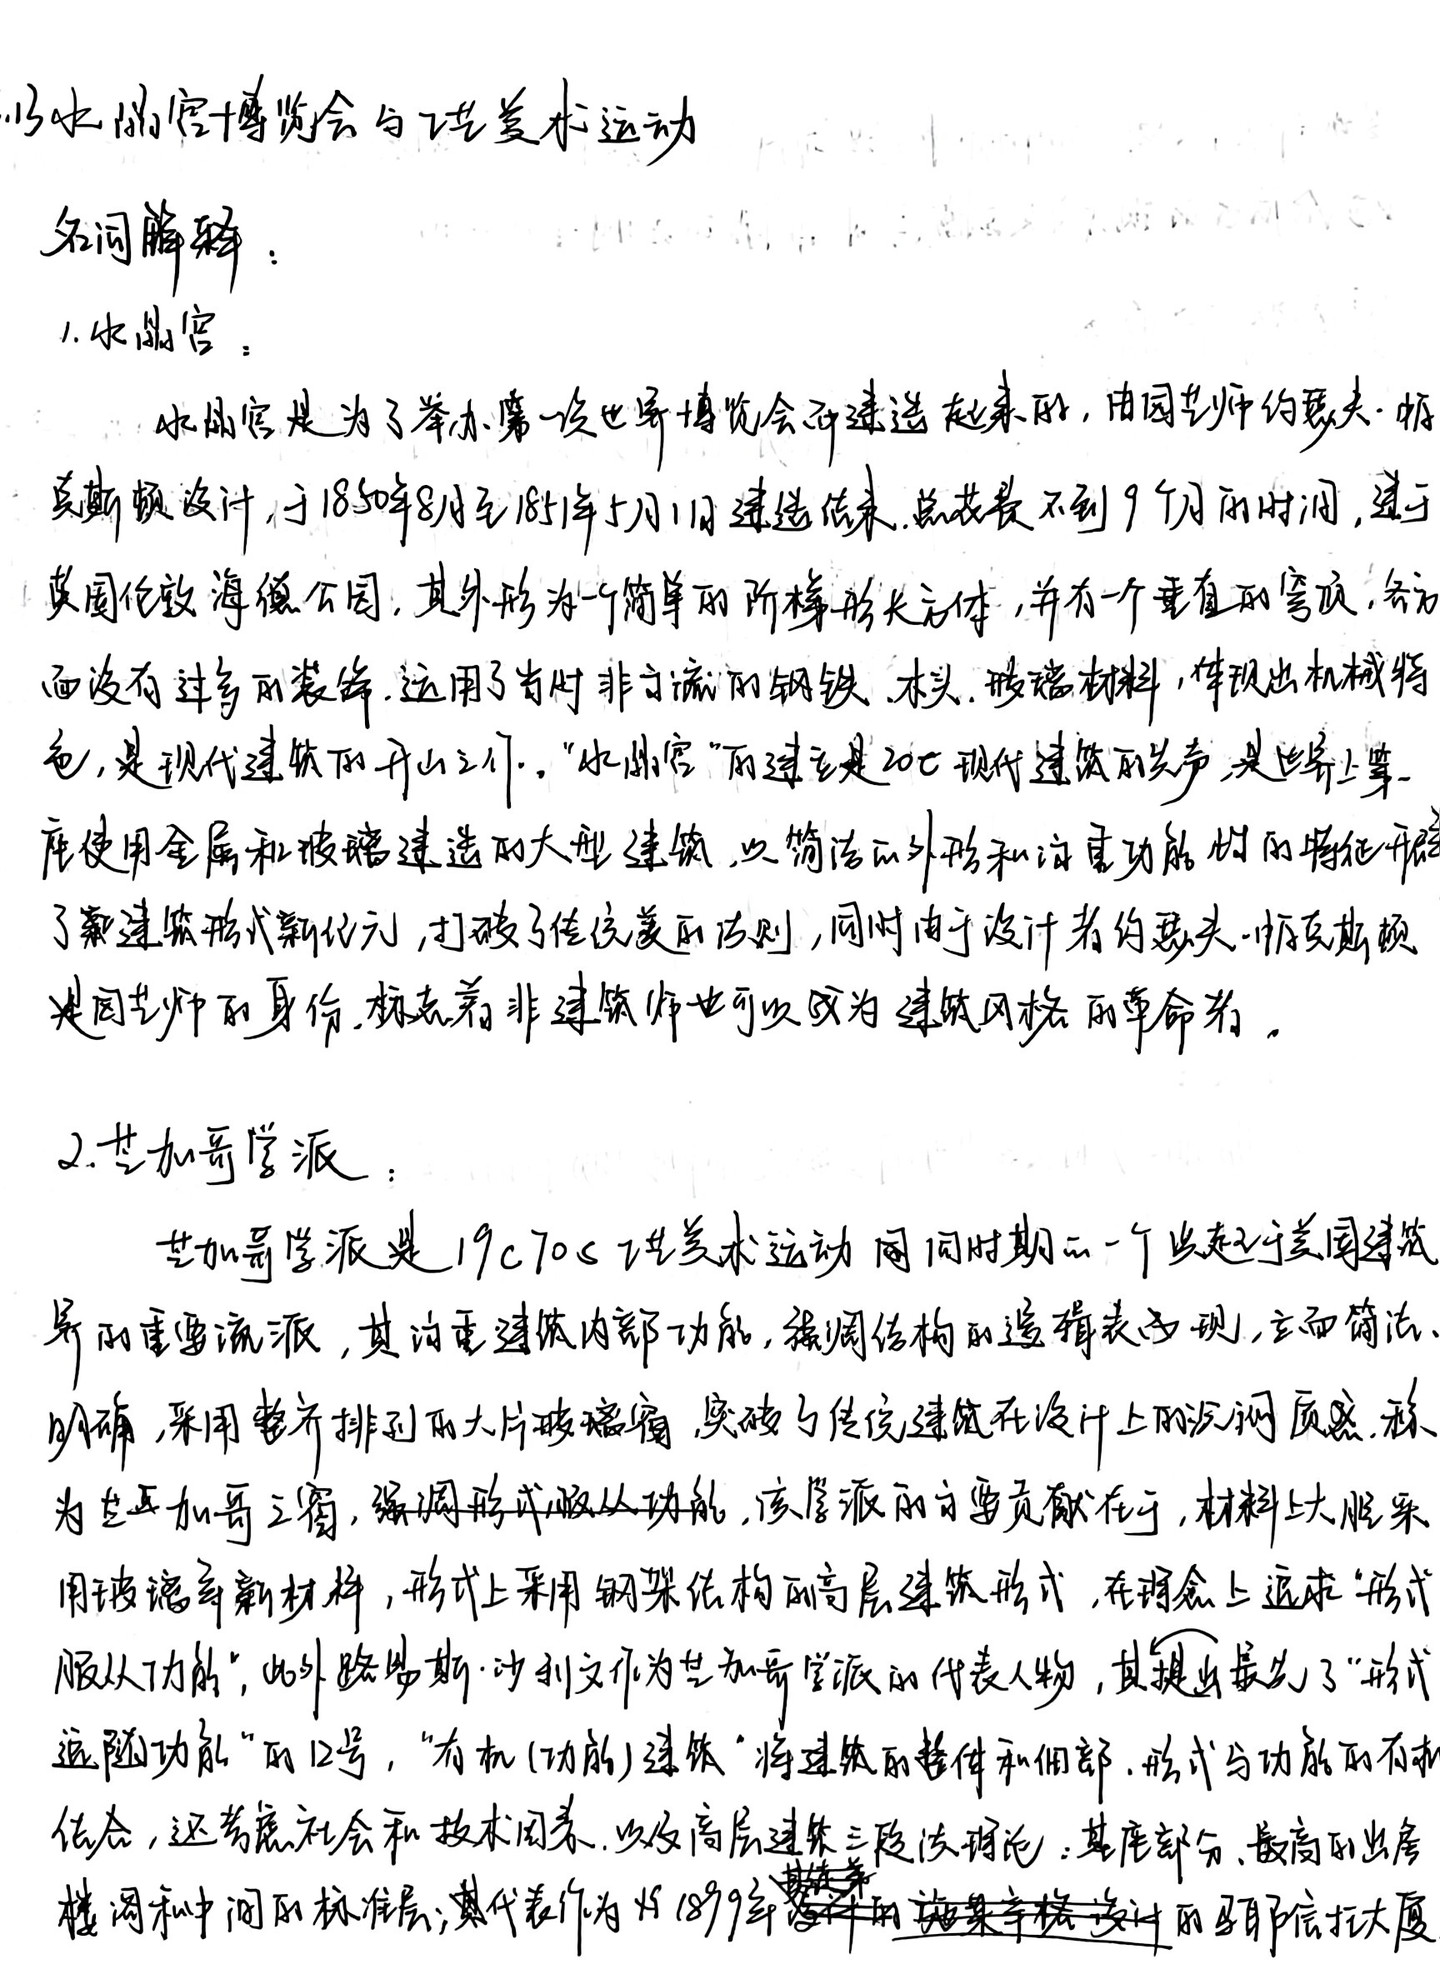 水晶宫博览会与工艺美术运动
名词解释：
1.水晶宫：
水晶宫是为了举办第一次世界博览会而建造起来的，由园艺师约瑟夫·帕
克斯顿设计，于1850年8月至1851年5月1日建造结束，总花费不到9个月的时间，建于
英国伦敦海德公园，其外形为一个简单的阶梯形长方体，并有一个垂直的穹顶，各方
面没有过多的装饰，运用了当时非主流的钢铁、木头、玻璃材料，体现出机械特
色，是现代建筑的开山之作。“水晶宫”的建立是20c现代建筑的先声，是世界上第一
座使用金属和玻璃建造的大型建筑，以简洁的外形和注重功能性的特征开辟
了新建筑形式新纪元，打破了传统美的法则，同时由于设计者约瑟夫·帕克斯顿
是园艺师的身份，标志着非建筑师也可以成为建筑风格的革命者。
2.芝加哥学派：
芝加哥学派是19c70s工艺美术运动同时期的一个兴起于美国建筑
界的重要流派，其注重建筑内部功能，强调结构的逻辑表现，立面简洁、
明确，采用整齐排列的大片玻璃窗，突破了传统建筑在设计上的沉闷质感，称
为芝加哥之窗，强调形式服从功能，该学派的主要贡献在于，材料上大胆采
用玻璃等新材料，形式上采用钢架结构的高层建筑形式，在理念上追求“形式
服从功能”，此外路易斯·沙利文作为芝加哥学派的代表人物，其提出最先了“形式
追随功能”的口号，“有机(功能)建筑”将建筑的整体和细部、形式与功能的有机
结合，还考虑社会和技术因素，以及高层建筑三段法理论：基座部分、最高的出檐
楼阁和中间的标准层；其代表作为 1899年 设计的 施莱辛格 设计的马耶信托大厦